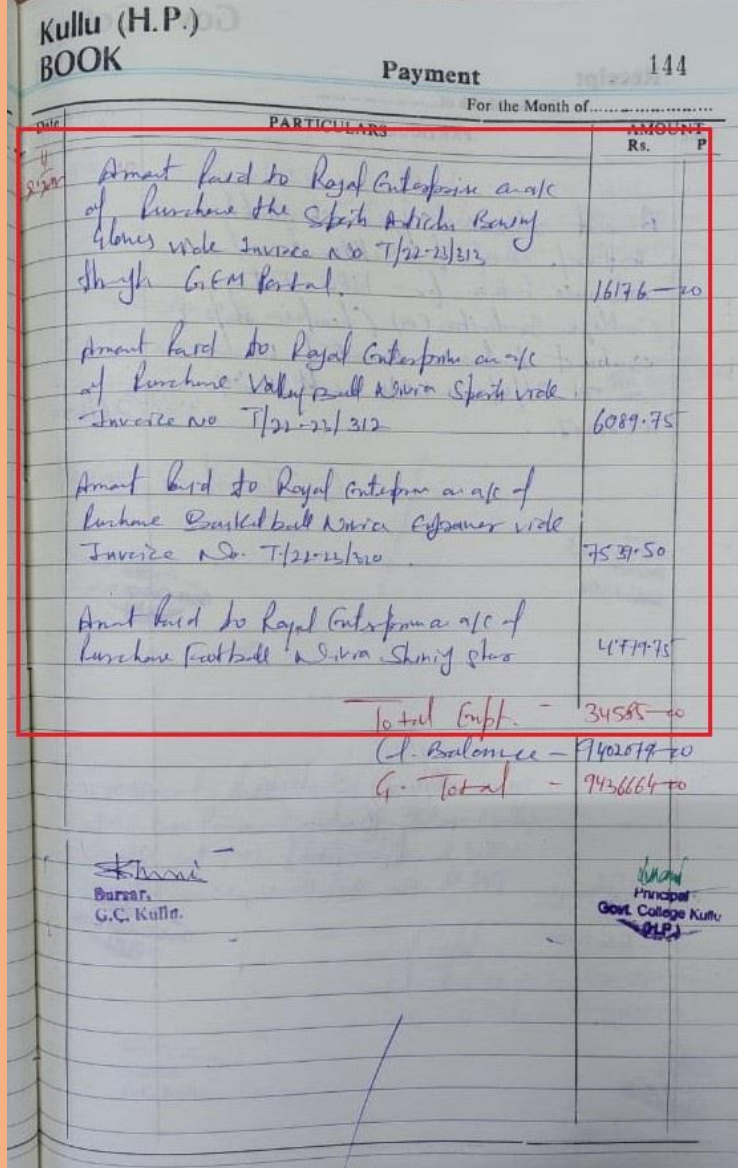 Kullu (H.P.)
BOOK
Payment 144
For the Month of
Date PARTICULARS AMOUNT
Rs. P
Amount Paid to Royal Enterprise on a/c
of Purchase the Sports Articles Boxing
Gloves vide Invoice No T/22-23/313
through GEM Portal. 16176-00
Amount Paid to Royal Enterprise on a/c
of Purchase Valley Ball Nivia Sports vide
Invoice No T/22-23/312 6089.75
Amount Paid to Royal Enterprise on a/c of
Purchase Basketball Nivia vide
Invoice No. T/22-23/320 7539.50
Amount Paid to Royal Enterprise a/c of
Purchase Football Nivia Shining Star 4779.75
Total Expt. - 34585-00
Cl. Balance - 9402079-00
G. Total - 9436664-00
Bursar, Principal
G.C. Kullu. Govt. College Kullu
(H.P.)